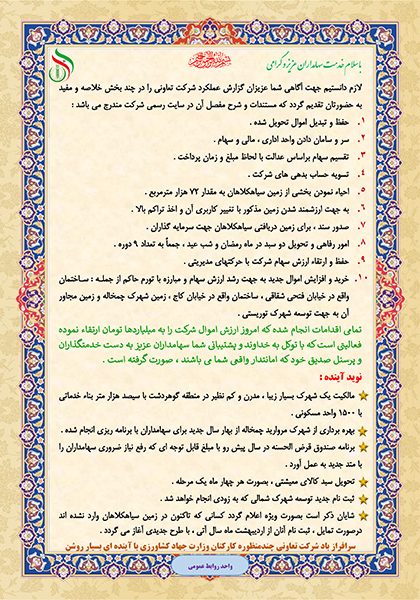 با سلام خدمت سهامداران عزیز و گرامی
لازم دانستیم جهت آگاهی شما عزیزان گزارش عملکرد شرکت تعاونی را در چند بخش خلاصه و مفید
به حضورتان تقدیم گردد که مستندات و شرح مفصل آن در سایت رسمی شرکت مندرج می باشد :
۱. حفظ و تبدیل اموال تحویل شده .
۲. سر و سامان دادن واحد اداری ، مالی و سهام .
۳. تقسیم سهام براساس عدالت با لحاظ مبلغ و زمان پرداخت .
۴. تسویه حساب بدهی های شرکت .
۵. احیاء نمودن بخشی از زمین سیاهکلاهان به مقدار ۷۲ هزار مترمربع .
۶. به جهت ارزشمند شدن زمین مذکور با تغییر کاربری آن و اخذ تراکم بالا .
۷. صدور سند ، برای زمین دریافتی سیاهکلاهان جهت سرمایه گذاران .
۸. امور رفاهی و تحویل دو سبد در ماه رمضان و شب عید ، جمعاً به تعداد ۹ دوره .
۹. حفظ و ارتقاء ارزش سهام شرکت با حرکتهای مدیریتی .
۱۰. خرید و افزایش اموال جدید به جهت رشد ارزش سهام و مبارزه با تورم حاکم از جمله : ساختمان
واقع در خیابان فتحی شقاقی ، ساختمان واقع در خیابان کاج ، زمین شهرک چمخاله و زمین مجاور
آن به جهت توسعه شهرک توریستی .
تمامی اقدامات انجام شده که امروز ارزش اموال شرکت را به میلیاردها تومان ارتقاء نموده
فعالیتی است که با توکل به خداوند و پشتیبانی شما سهامداران عزیز به دست خدمتگذاران
و پرسنل صدیق خود که امانتدار واقعی شما می باشند ، صورت گرفته است .
نوید آینده :
مالکیت یک شهرک بسیار زیبا ، مدرن و کم نظیر در منطقه گوهردشت با سیصد هزار متر بناء خدماتی
با ۱۵۰۰ واحد مسکونی .
بهره برداری از شهرک مروارید چمخاله از بهار سال جدید برای سهامداران با برنامه ریزی انجام شده .
برنامه صندوق قرض الحسنه در سال پیش رو با مبلغ قابل توجه ای که رفع نیاز ضروری سهامداران را
با متد جدید به عمل آورد .
تحویل سبد کالای معیشتی ، بصورت هر چهار ماه یک مرحله .
ثبت نام جدید توسعه شهرک شمالی که به زودی انجام خواهد شد .
شایان ذکر است بصورت ویژه اعلام گردد کسانی که تاکنون در زمین سیاهکلاهان وارد نشده اند
درصورت تمایل ، ثبت نام آنان از اردیبهشت ماه سال آتی ، با طرح جدیدی آغاز می گردد .
سرافراز باد شرکت تعاونی چندمنظوره کارکنان وزارت جهاد کشاورزی با آینده ای بسیار روشن
واحد روابط عمومی